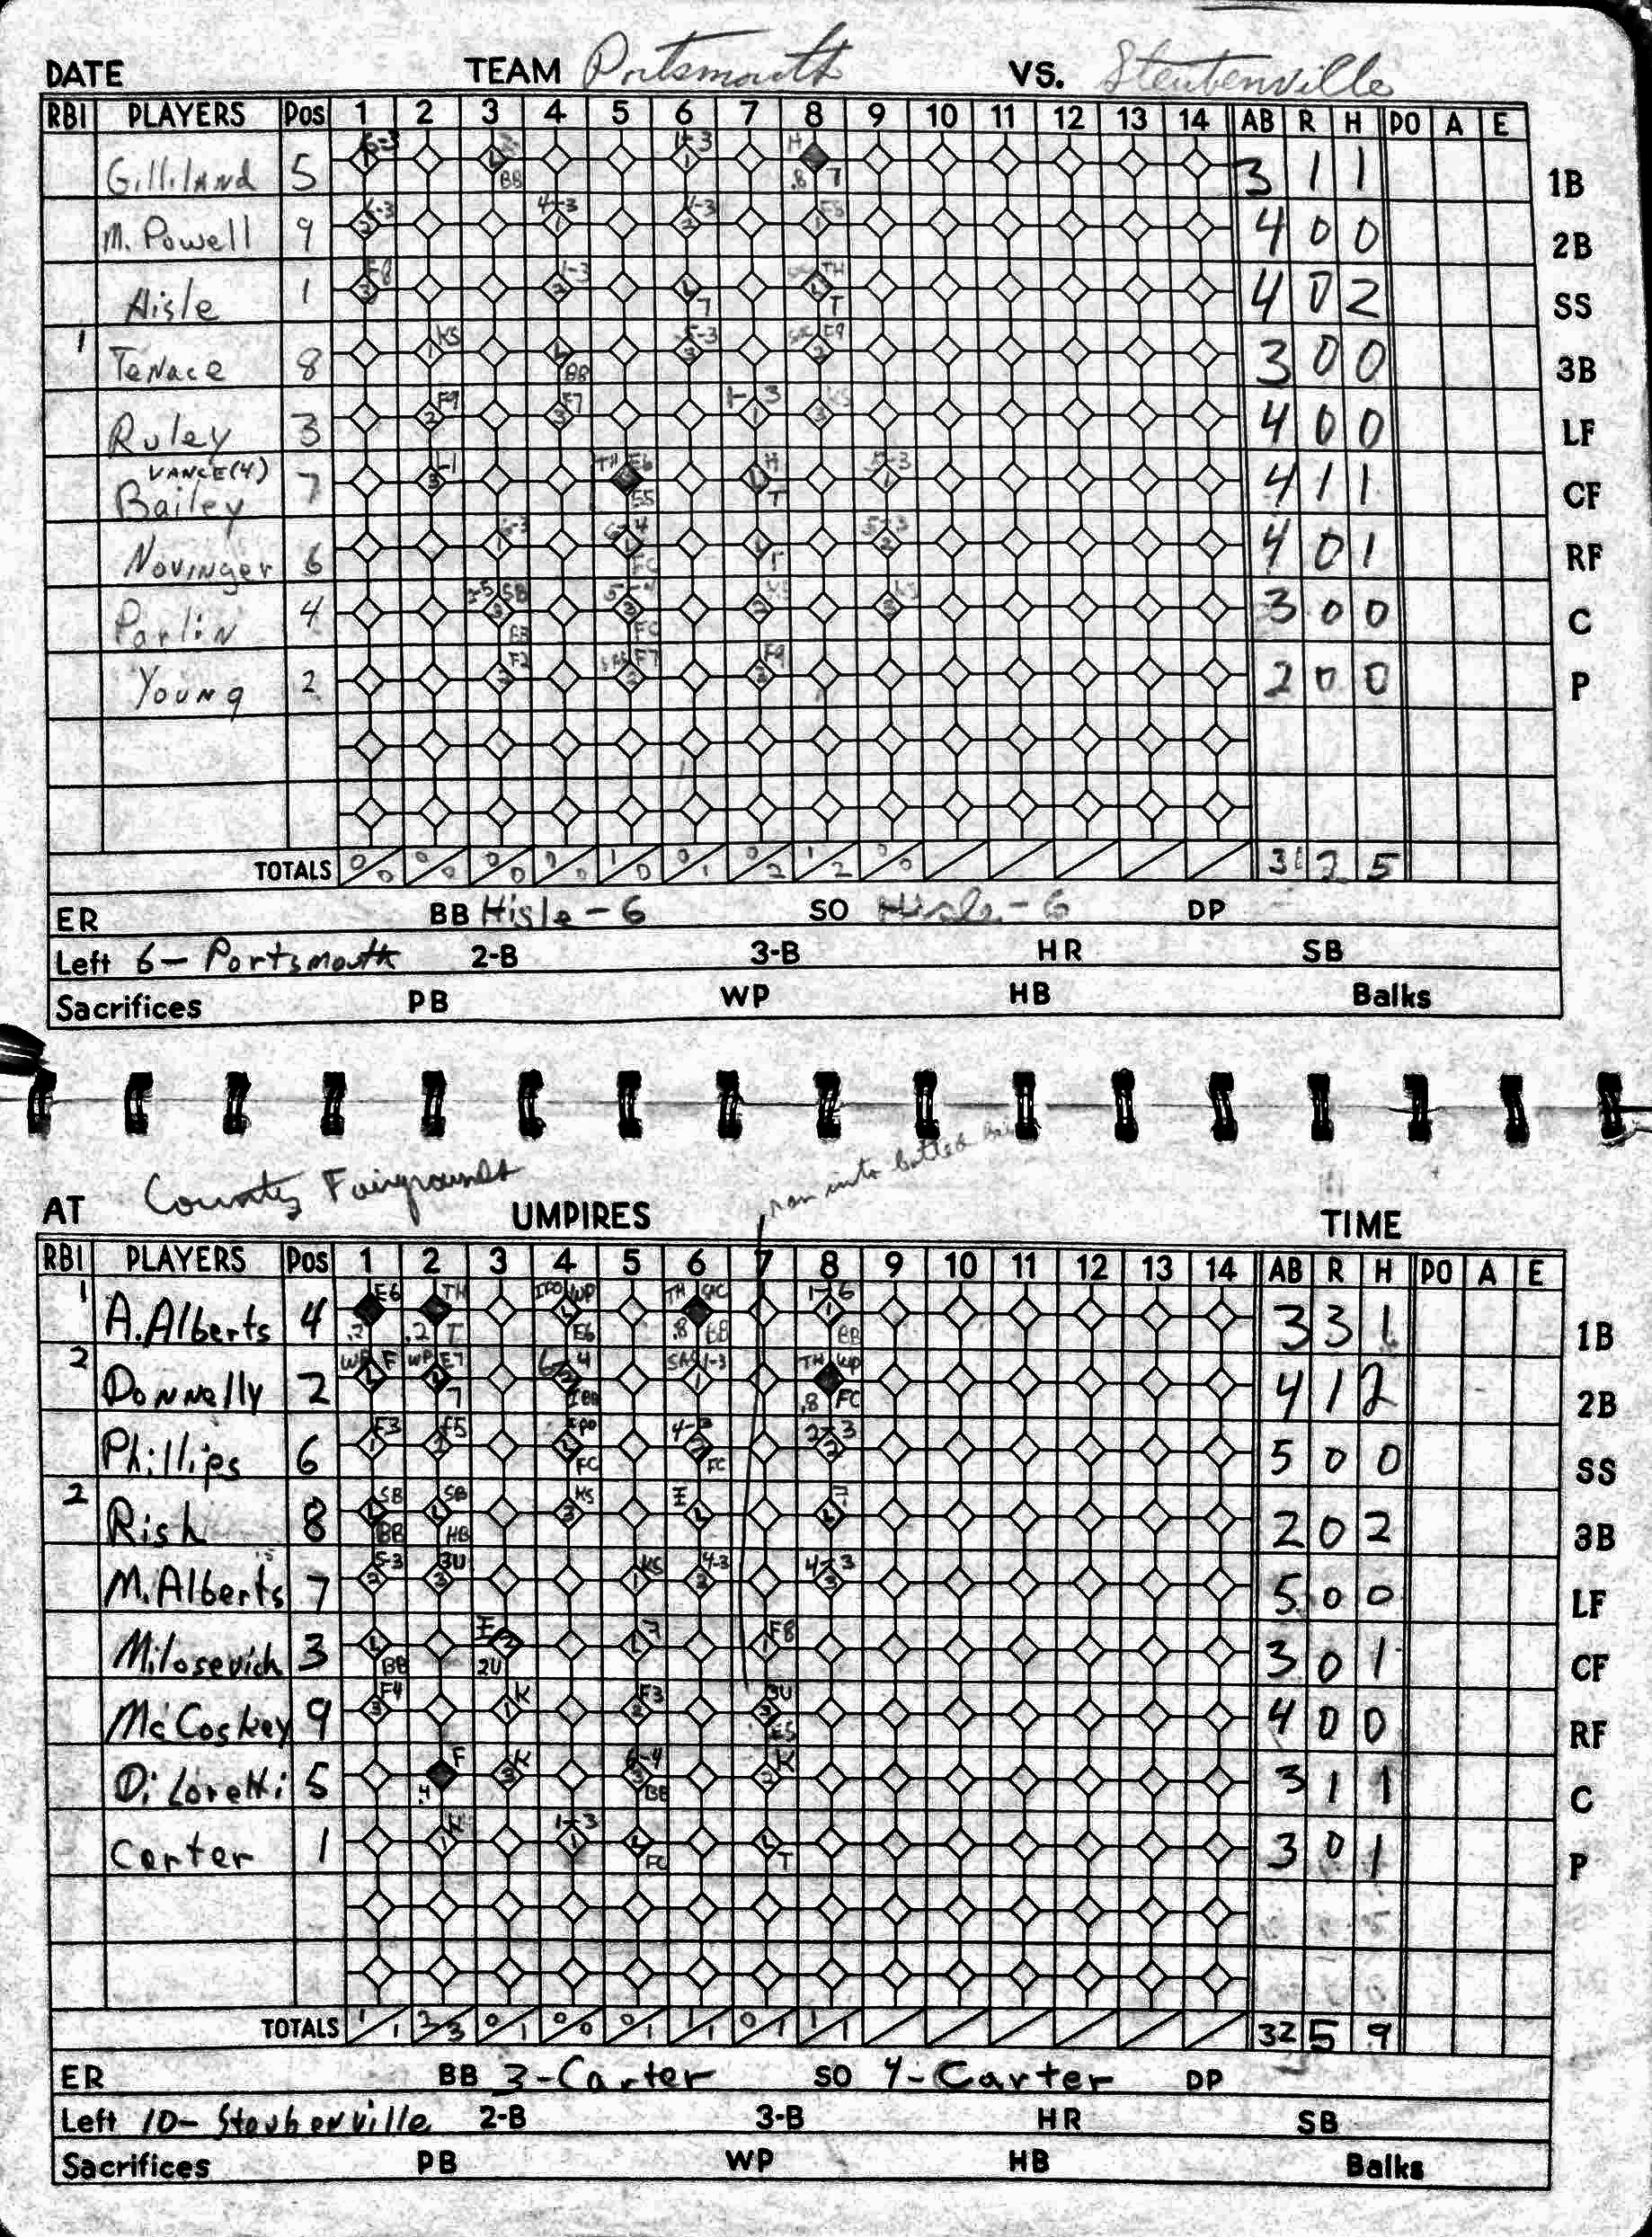 DATE TEAM Portsmouth VS. Steubenville
RBI PLAYERS Pos 1 2 3 4 5 6 7 8 9 10 11 12 13 14 AB R H PO A E
Gilliland 5 6-3 BB 1-3 H .8 7 3 1 1 1B
M. Powell 9 4-3 4 0 0 2B
Hisle 1 F8 1-3 7 TH T 4 0 2 SS
1 Tenace 8 KS BB 5-3 F9 3 0 0 3B
Ruley 3 F9 F7 1-3 KS 4 0 0 LF
VANCE(4)
Bailey 7 TH E6 H T 5-3 4 1 1 CF
Novinger 6 6-3 6-4 FC T 5-3 4 0 1 RF
Parlin 4 SB BB FC KS 3 0 0 C
Young 2 F2 F7 F9 2 0 0 P
TOTALS 0/0 0/0 0/0 0/0 1/0 0/1 0/2 1/2 0/0 2 5
ER BB Hisle-6 SO Hisle-6 DP
Left 6- Portsmouth 2-B 3-B HR SB
Sacrifices PB WP HB Balks
ran into batted
AT County Fairgrounds UMPIRES TIME
RBI PLAYERS Pos 1 2 3 4 5 6 7 8 9 10 11 12 13 14 AB R H PO A E
1 A. Alberts 4 E6 .2 TH .2 T WP E6 TH SAC .8 BB 1-6 BB 3 3 1 1B
2 Donnelly 2 WP F WP E7 7 6-4 IBB SAC 1-3 TH WP .8 FC 4 1 2 2B
Phillips 6 F3 F5 FC 4-3 FC 2-3 5 0 0 SS
2 Rish 8 SB BB SB HB KS I 7 2 0 2 3B
M. Alberts 7 5-3 3U KS 4-3 4-3 5 0 0 LF
Milosevich 3 BB I 2U 7 F8 3 0 1 CF
McCoskey 9 F4 K F3 3U E5 4 0 0 RF
DiLoretti 5 F .4 K 6-4 BB K 3 1 1 C
Carter 1 K 1-3 FC T 3 0 1 P
TOTALS 1/1 3/3 0/1 0/0 0/1 1/1 0/1 1/1 32 5 9
ER BB 3-Carter SO 4-Carter DP
Left 10- Steubenville 2-B 3-B HR SB
Sacrifices PB WP HB Balks